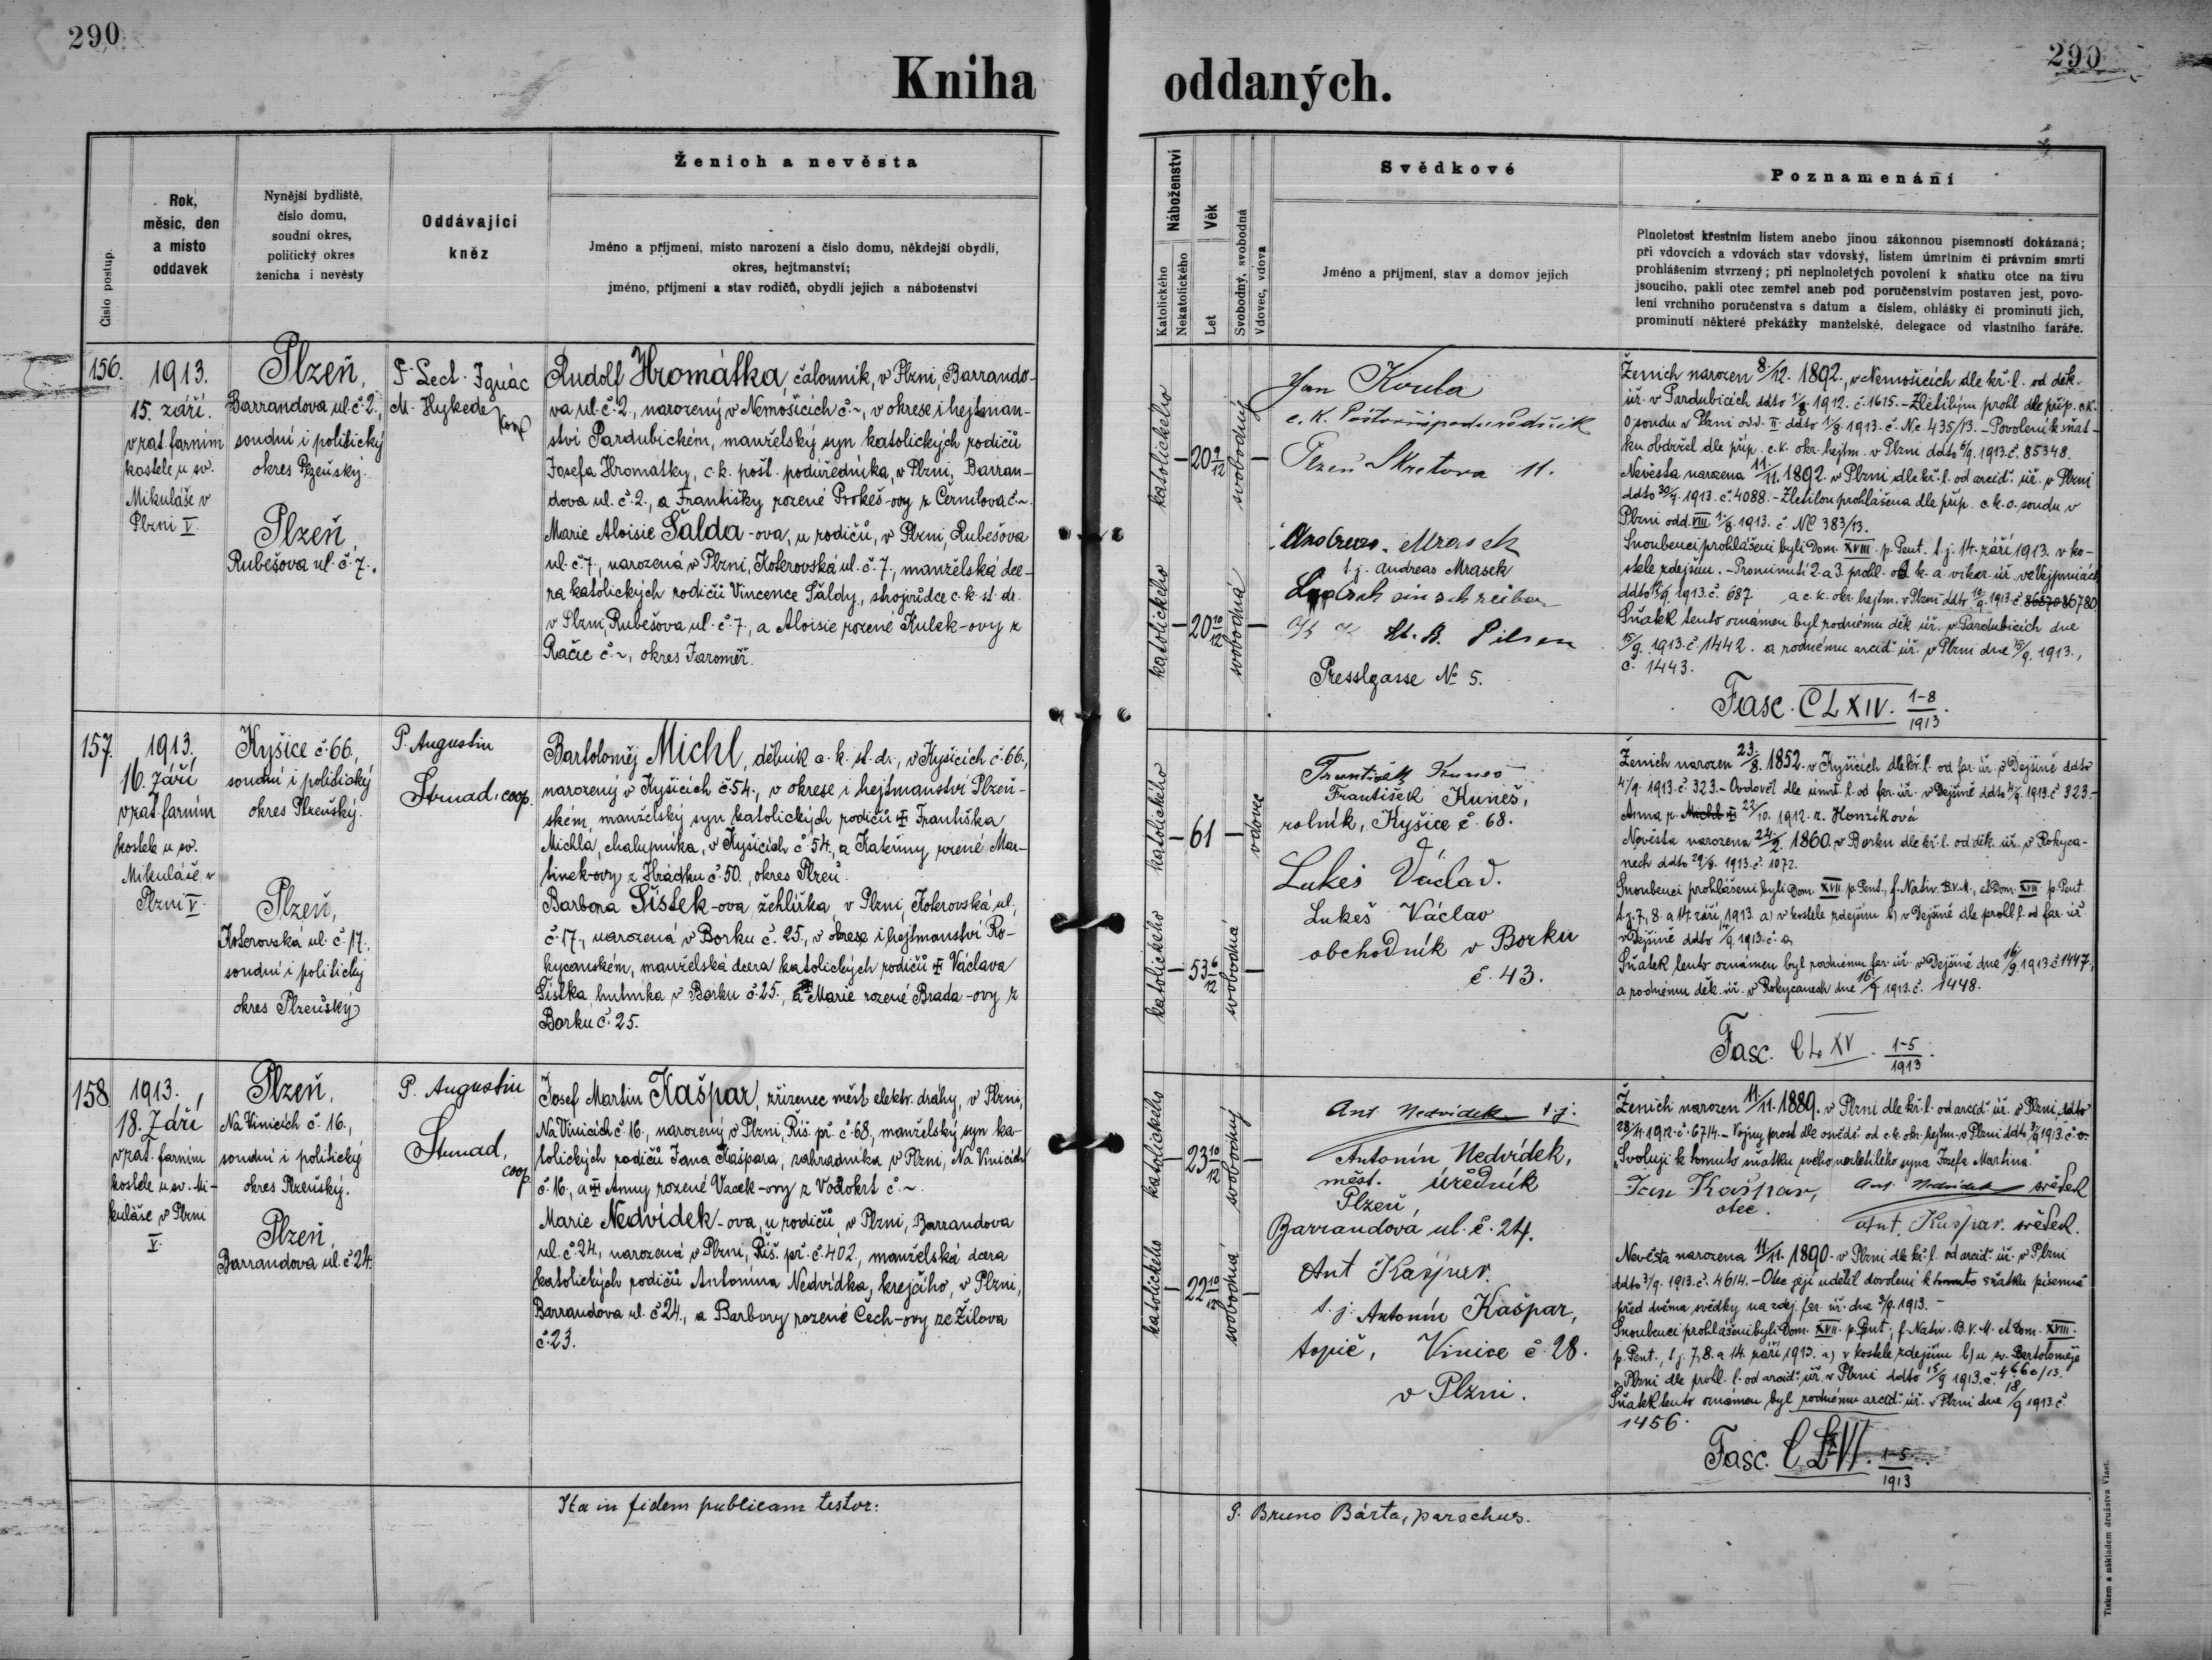 290
290
Kniha oddaných.
Číslo postup.
Rok,
měsíc, den
a místo
oddavek
Nynější bydliště,
číslo domu,
soudní okres,
politický okres
ženicha i nevěsty
Oddávající
kněz
Ženich a nevěsta
Jméno a příjmení, místo narození a číslo domu, někdejší obydlí,
okres, hejtmanství;
jméno, příjmení a stav rodičů, obydlí jejich a náboženství
Náboženství
Katolického
Nekatolického
Věk
Let
Svobodný, svobodná
Vdovec, vdova
Svědkové
Jméno a příjmení, stav a domov jejich
Poznamenání
Plnoletost křestním listem anebo jinou zákonnou písemností dokázaná;
při vdovcích a vdovách stav vdovský, listem úmrtním či právním smrti
prohlášením stvrzený; při neplnoletých povolení k sňatku otce na živu
jsoucího, pakli otec zemřel aneb pod poručenstvím postaven jest, povo-
lení vrchního poručenstva s datum a číslem, ohlášky či prominutí jich,
prominutí některé překážky manželské, delegace od vlastního faráře.
156.
1913.
15. září.
v rat. farním
kostele u sv.
Mikuláše v
Plzni V.
Plzeň,
Barrandova ul. č. 2.,
soudní i politický
okres Plzeňský.
Plzeň,
Rubešova ul. č. 7.
P. Lect. Ignác
M. Hykede
coop
Rudolf Hromátka čalouník, v Plzni, Barrando-
va ul. č. 2., narozený v Nemošicích č. ~, v okrese i hejtman-
ství Pardubickém, manželský syn katolických rodičů
Josefa Hromátky, c. k. pošt. podúředníka, v Plzni, Barran-
dova ul. č. 2., a Františky rozené Prokeš-ovy z Černilova č. ~.
Marie Aloisie Šalda-ova, u rodičů, v Plzni, Rubešova
ul. č. 7., narozená v Plzni, Koterovská ul. č. 7., manželská dce-
ra katolických rodičů Vincence Šaldy, strojvůdce c. k. st. dr.
v Plzni, Rubešova ul. č. 7., a Aloisie rozené Kulek-ovy z
Račic č. ~, okres Jaroměř.
katolického
20 9/12
svobodný
katolického
20 10/12
svobodná
Jan Koula
c. K. Poštovní podúředník
Plzeň Skretova 11.
Andreas Mrasek
t. j. Andreas Mrasek
K K St. B. Pilsen
Presslgasse No 5.
Ženich narozen 8/12. 1892., v Nemošicích dle kř. l. od děk.
úř. v Pardubicích ddto 1/8. 1912. č. 1615. - Zletilým prohl. dle příp. c.k.
o. soudu v Plzni odd. II. ddto 1/8. 1913. č. Nc. 435/13. - Povolení k sňat-
ku obdržel dle příp. c. k. okr. hejtm. v Plzni ddto 6/9. 1913. č. 85348.
Nevěsta narozena 11/11. 1892. v Plzni dle kř. l. od arcid. úř. v Plzni
ddto 30/7. 1913. č. 4088. - Zletilou prohlášena dle příp. c. k. o. soudu v
Plzni odd. VIII. 1/8. 1913. č. NC 383/13.
Snoubenci prohlášeni byli Dom. XVIII. p. Pent. t. j. 14. září 1913. v ko-
stele zdejším. - Prominutí 2. a 3. prohl. od k. a. vikar. úř. ve Vejprnicích
ddto 13/9 1913. č. 687 a c. k. okr. hejtm. v Plzni ddto 10/9. 1913. č. 86570 86780
Sňatek tento oznámen byl rodnému děk. úř. v Pardubicích dne
15/9. 1913. č. 1442. a rodnému arcid. úř. v Plzni dne 15/9. 1913.,
č. 1443.
Fasc. CLXIV. 1-8/1913.
157.
1913.
16. září
v rat. farním
kostele u sv.
Mikuláše v
Plzni V.
Kyšice č. 66,
soudní i politický
okres Plzeňský.
Plzeň,
Koterovská ul. č. 17.,
soudní i politický
okres Plzeňský
P. Augustin
Strnad, coop.
Bartoloměj Michl, dělník c. k. st. dr., v Kyšicích č. 66,
narozený v Kyšicích č. 54., v okrese i hejtmanství Plzeň-
ském, manželský syn katolických rodičů ‡ Františka
Michla, chalupníka, v Kyšicích č. 54., a Kateřiny rozené Mar-
tinek-ovy z Hrádku č. 50., okres Plzeň.
Barbora Šístek-ova, žehlířka, v Plzni, Koterovská ul.
č. 17., narozená v Borku č. 25., v okrese i hejtmanství Ro-
kycanském, manželská dcera katolických rodičů ‡ Václava
Šístka, hutníka v Borku č. 25., a Marie rozené Brada-ovy z
Borku č. 25.
katolického
61
vdovec
katolického
53 6/12
svobodná
František Kuneš
František Kuneš,
rolník, Kyšice č. 68.
Lukeš Václav.
Lukeš Václav
obchodník v Borku
č. 43.
Ženich narozen 23/8. 1852. v Kyšicích dle kř. l. od far. úř. v Dejšině ddto
4/9. 1913. č. 323. - Ovdověl dle úmrt. l. od far. úř. v Dejšině ddto 4/9. 1913. č. 323. -
Anna r. Michl ‡ 22/10. 1912. r. Honzíková
Nevěsta narozena 24/2. 1860. v Borku dle kř. l. od děk. úř. v Rokyca-
nech ddto 29/8. 1913. č. 1072.
Snoubenci prohlášeni byli Dom. XVII. p. Pent., f. Nativ. B. V. M., et Dom. XVIII p. Pent.
t. j. 7., 8. a 14. září, 1913. a) v kostele zdejším b) v Dejšině dle prohl. l. od far. úř.
v Dejšině ddto 14/9. 1913. č. o.
Sňatek tento oznámen byl rodnému far. úř. v Dejšině dne 16/9. 1913 č. 1447.,
a rodnému děk. úř. v Rokycanech dne 16/9. 1913. č. 1448.
Fasc. CLXV. 1-5/1913.
158.
1913.,
18. Září
v rat. farním
kostele u sv. Mi-
kuláše v Plzni
V.
Plzeň,
Na Vinicích č. 16.,
soudní i politický
okres Plzeňský.
Plzeň,
Barrandova ul. č. 24.
P. Augustin
Strnad,
coop.
Josef Martin Kašpar, zřízenec měst. elektr. dráhy, v Plzni,
Na Vinicích č. 16., narozený v Plzni, Říš. př. č. 68, manželský syn ka-
tolických rodičů Jana Kašpara, zahradníka v Plzni, Na Vinicích
č. 16., a ‡ Anny rozené Vacek-ovy z Vodokrt č. ~.
Marie Nedvídek-ova, u rodičů, v Plzni, Barrandova
ul. č. 24., narozená v Plzni, Říš. př. č. 402., manželská dcera
katolických rodičů Antonína Nedvídka, krejčího, v Plzni,
Barrandova ul. č. 24., a Barbory rozené Čech-ovy ze Žilova
č. 23.
katolického
23 10/12
svobodný
katolického
22 10/12
svobodná
Ant. Nedvídek t. j.
Antonín Nedvídek,
měst. úředník
Plzeň,
Barrandova ul. č. 24.
Ant Kašpar.
t. j. Antonín Kašpar,
topič, Vinice č. 28.
v Plzni.
Ženich narozen 11/11. 1889. v Plzni dle kř. l. od arcid. úř. v Plzni, ddto
28/11. 1912. č. 6714. - Vojny prost dle osvědč. od c. k. okr. hejtm. v Plzni ddto 3/9 1913. č. o.
„Svoluji k tomuto sňatku svého nezletilého syna Josefa Martina."
Jan Kašpar, Ant. Nedvídek svědek
otec. Ant. Kašpar. svědek.
Nevěsta narozena 11/11. 1890. v Plzni dle kř. l. od arcid. úř. v Plzni
ddto 3/9. 1913. č. 4614. - Otec její udělil dovolení k tomuto sňatku písemně
před dvěma svědky na zdej. far. úř. dne 3/9. 1913. -
Snoubenci prohlášeni byli Dom. XVII. p. Pent., f. Nativ. B. V. M. et Dom. XVIII.
p. Pent., t. j. 7., 8. a 14. září 1913. a) v kostele zdejším b) u sv. Bartoloměje
v Plzni dle prohl. l. od arcid. úř. v Plzni ddto 15/9 1913. č. 4660/13.
Sňatek tento oznámen byl rodnému arcid. úř. v Plzni dne 18/9 1913. č.
1456.
Fasc. CLXVI. 1-5/1913.
Ita in fidem publicam testor:
P. Bruno Bárta, parochus.
Tiskem a nákladem družstva Vlast.